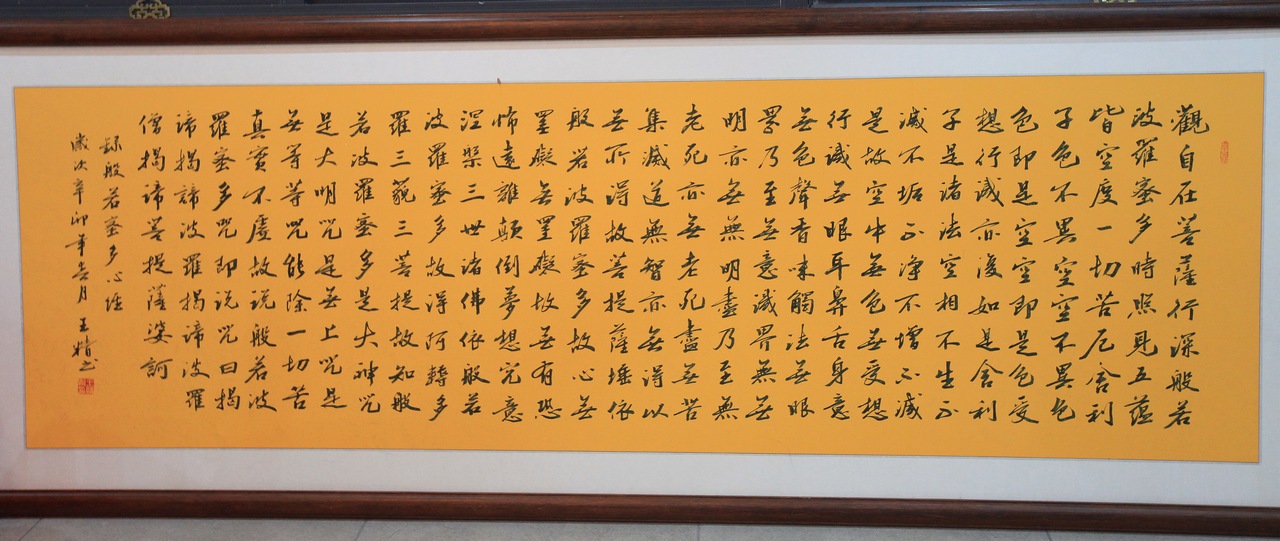 觀自在菩薩行深般若
波羅蜜多時照見五蘊
皆空度一切苦厄舍利
子色不異空空不異色
色即是空空即是色受
想行識亦復如是舍利
子是諸法空相不生不
滅不垢不淨不增不減
是故空中無色無受想
行識無眼耳鼻舌身意
無色聲香味觸法無眼
界乃至無意識界無無
明亦無無明盡乃至無
老死亦無老死盡無苦
集滅道無智亦無得以
無所得故菩提薩埵依
般若波羅蜜多故心無
罣礙無罣礙故無有恐
怖遠離顛倒夢想究竟
涅槃三世諸佛依般若
波羅蜜多故得阿耨多
羅三藐三菩提故知般
若波羅蜜多是大神咒
是大明咒是無上咒是
無等等咒能除一切苦
真實不虛故說般若波
羅蜜多咒即說咒曰揭
諦揭諦波羅揭諦波羅
僧揭諦菩提薩婆訶
錄般若蜜多心經
歲次辛卯年吉月 王精书